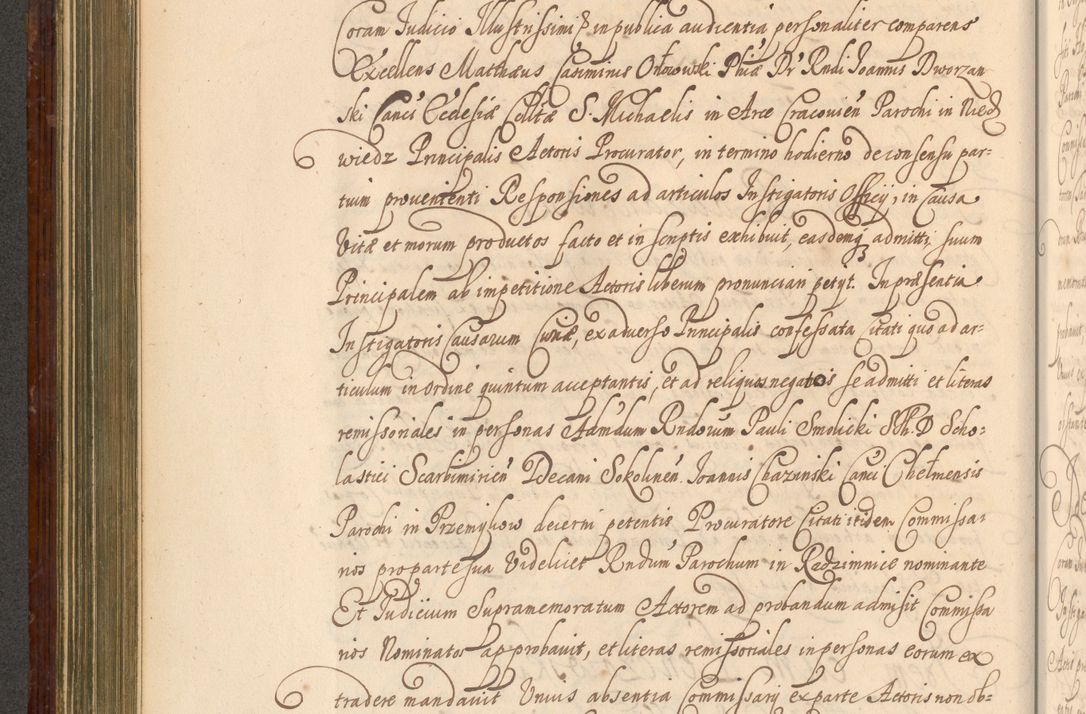 Coram Judicio Illustrissimi & in publica audientia personaliter comparens
Excellens Matthæus Casimirus Orłowski Phiæ Dr Rndi Joannis Dworzan
ski Canci Ecclesiæ Colltæ S. Michaelis in Arce Cracovień Parochi in Niedz
wiedz Principalis Actoris Procurator, in termino hodierno de consensu par=
tium provenienti Responsiones ad articulos Instigatoris Officij, in Causa
Vitæ et morum productos facto et in scriptis exhibuit, easdemq admitti, suum
Principalem ab impetitione Actoris liberum pronunciari petyt. In præsentia
Instigatoris Causarum Curiæ, ex adverso Principalis confessata Citati quo ad ar=
ticulum in ordine quintum acceptantis, et ad reliquos negatos se admitti et literas
remissoriales in personas Admdum Rndorum Pauli Smolicki STh. D Scho=
lastici Scarbimirień Decani Sokolineń. Joannis Chazinski Canci Chełmensis
Parochi in Przemykow decerni petentis Procuratore Citati itidem Commissa=
rios pro parte sua Videlicet Rndum Parochum in Radzimnice nominante
Et Judicium Supramemoratum Actorem ad probandum admisit Commissa
rios Nominatos approbavit, et literas remissoriales in personas eorum ex
tradere mandavit Unius absentia Commissarij ex parte Actoris non ob=